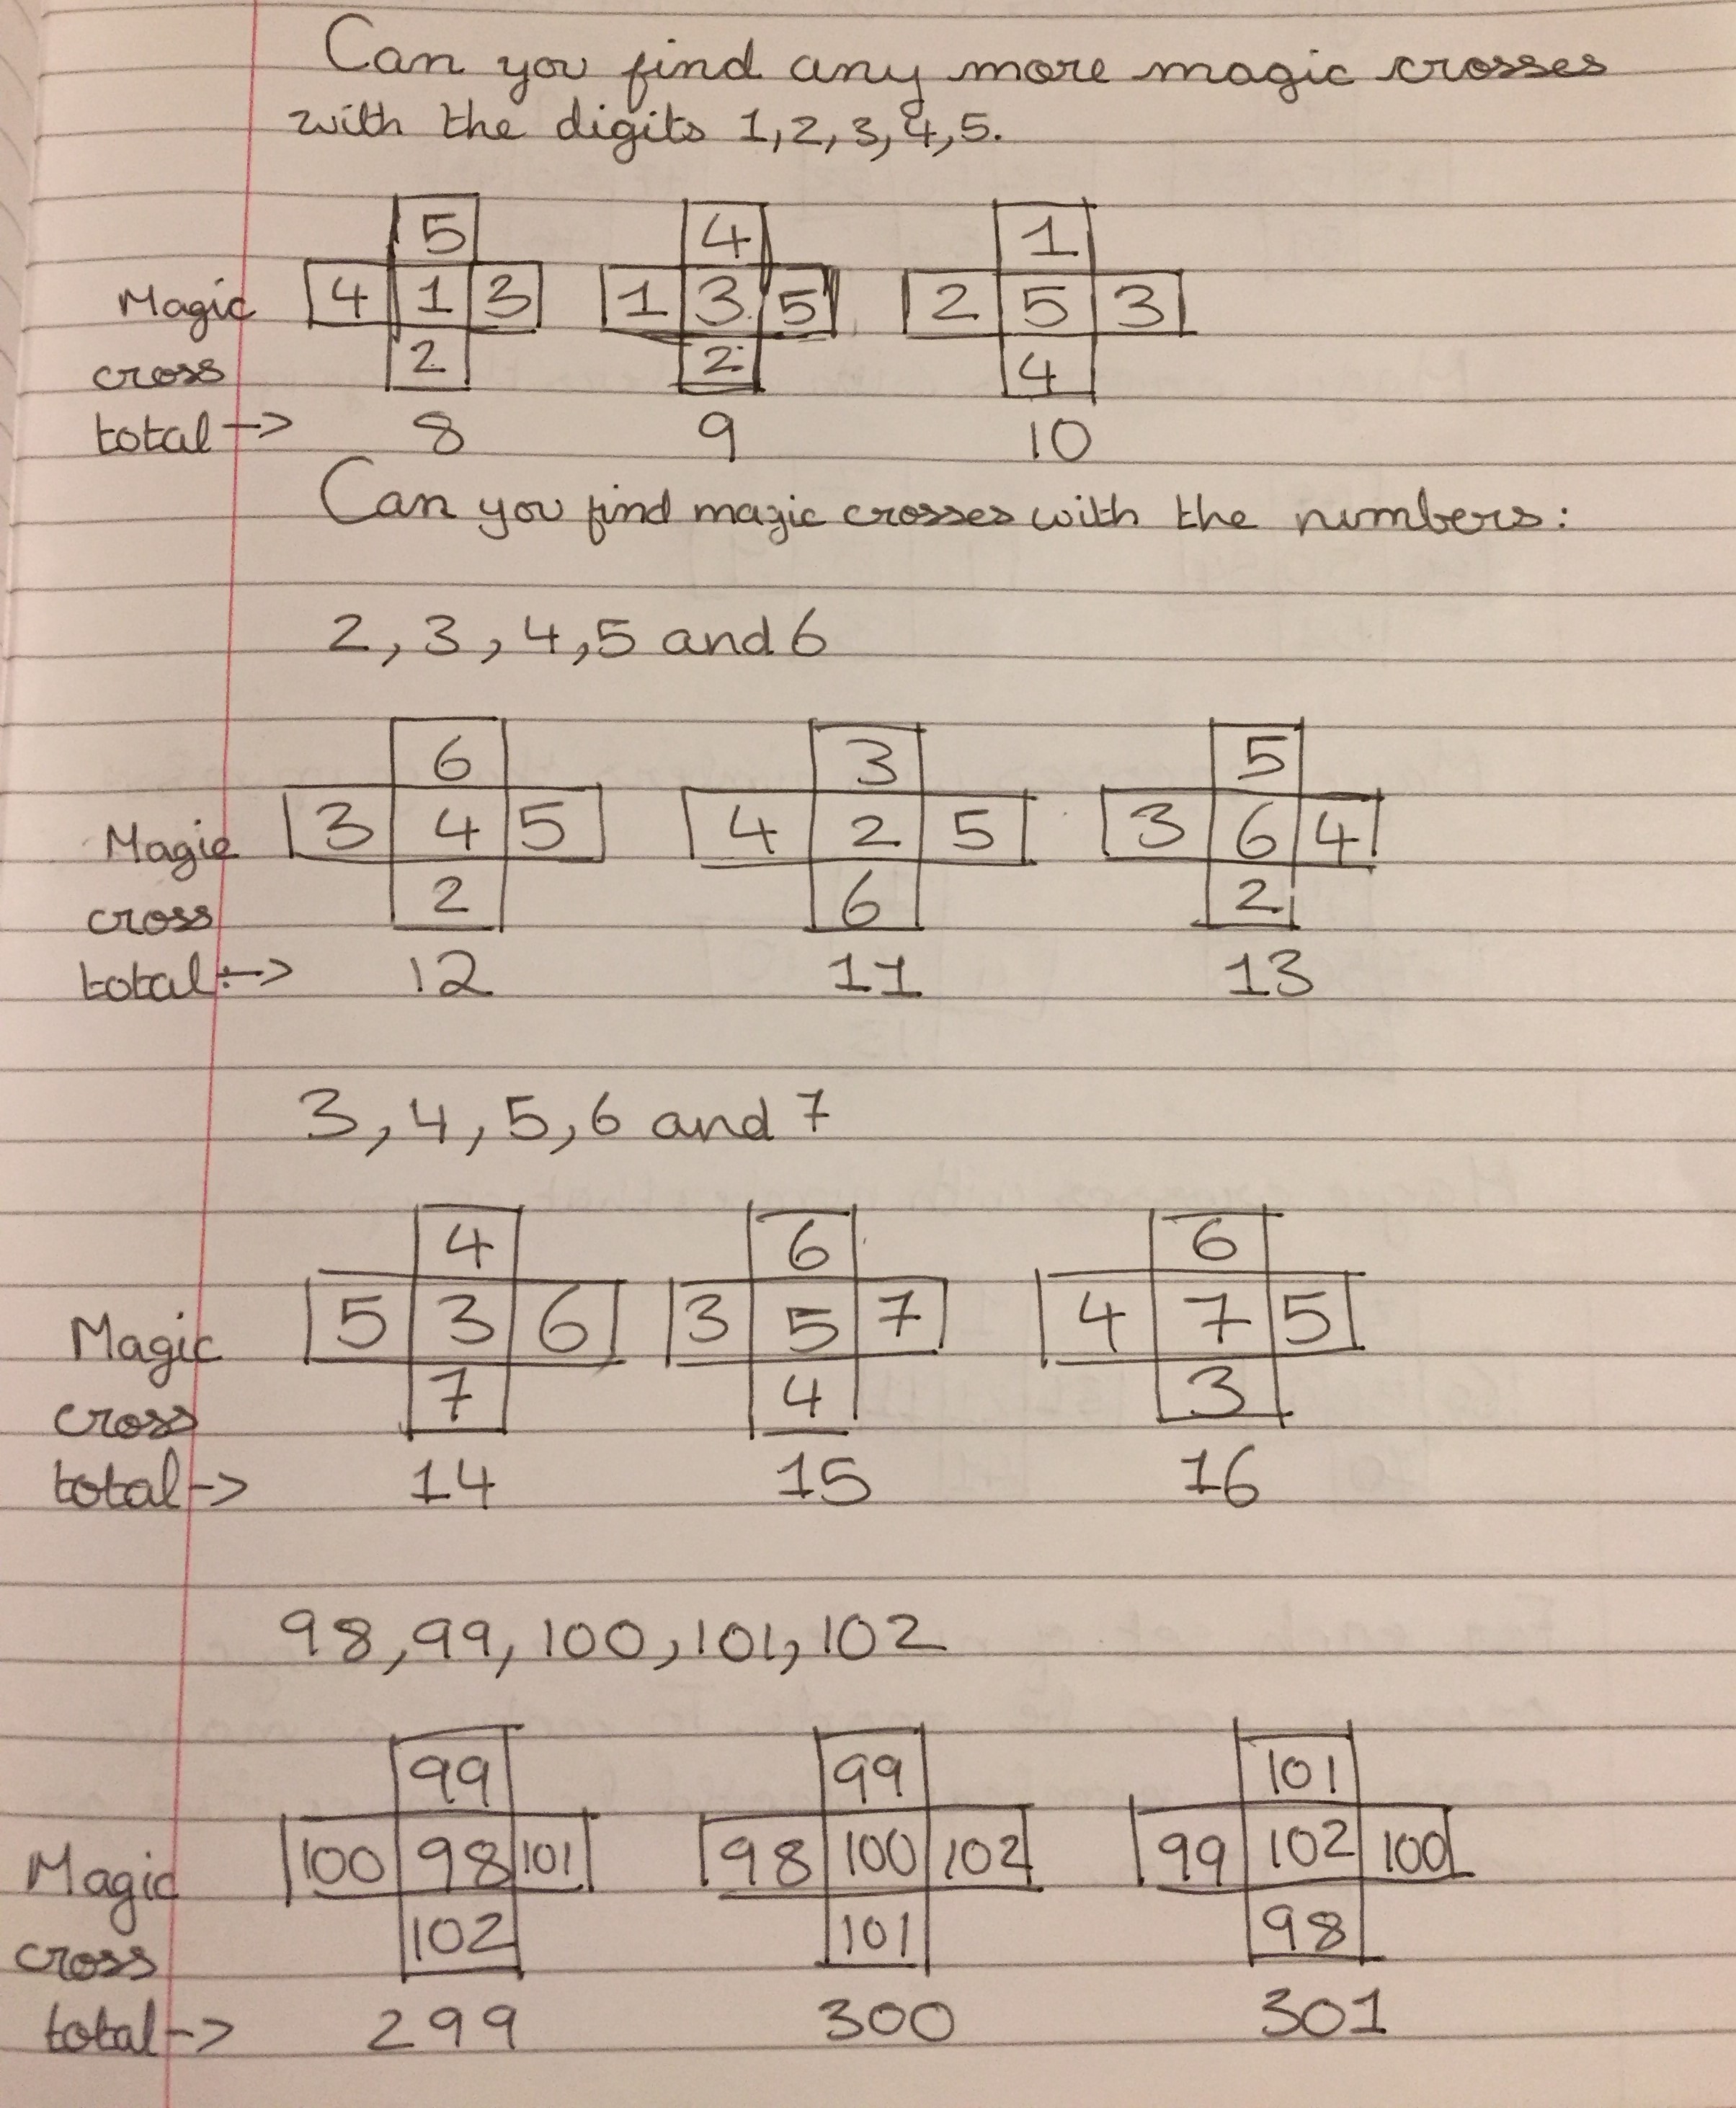 Can you find any more magic crosses
with the digits 1,2,3,4,5.
5 4 1
Magic 4 1 3 1 3 5 2 5 3
cross 2 2 4
total -> 8 9 10
Can you find magic crosses with the numbers:
2, 3, 4, 5 and 6
6 3 5
Magic 3 4 5 4 2 5 3 6 4
cross 2 6 2
total: -> 12 11 13
3, 4, 5, 6 and 7
4 6 6
Magic 5 3 6 3 5 7 4 7 5
cross 7 4 3
total -> 14 15 16
98, 99, 100, 101, 102
99 99 101
Magic 100 98 101 98 100 102 99 102 100
cross 102 101 98
total -> 299 300 301